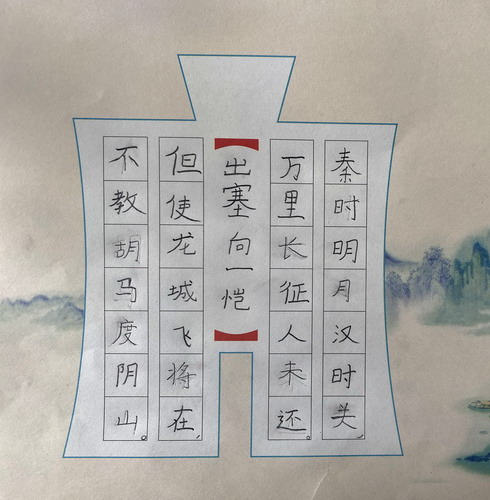 秦时明月汉时关,
万里长征人未还。
【出塞 向一恺】
但使龙城飞将在,
不教胡马度阴山。